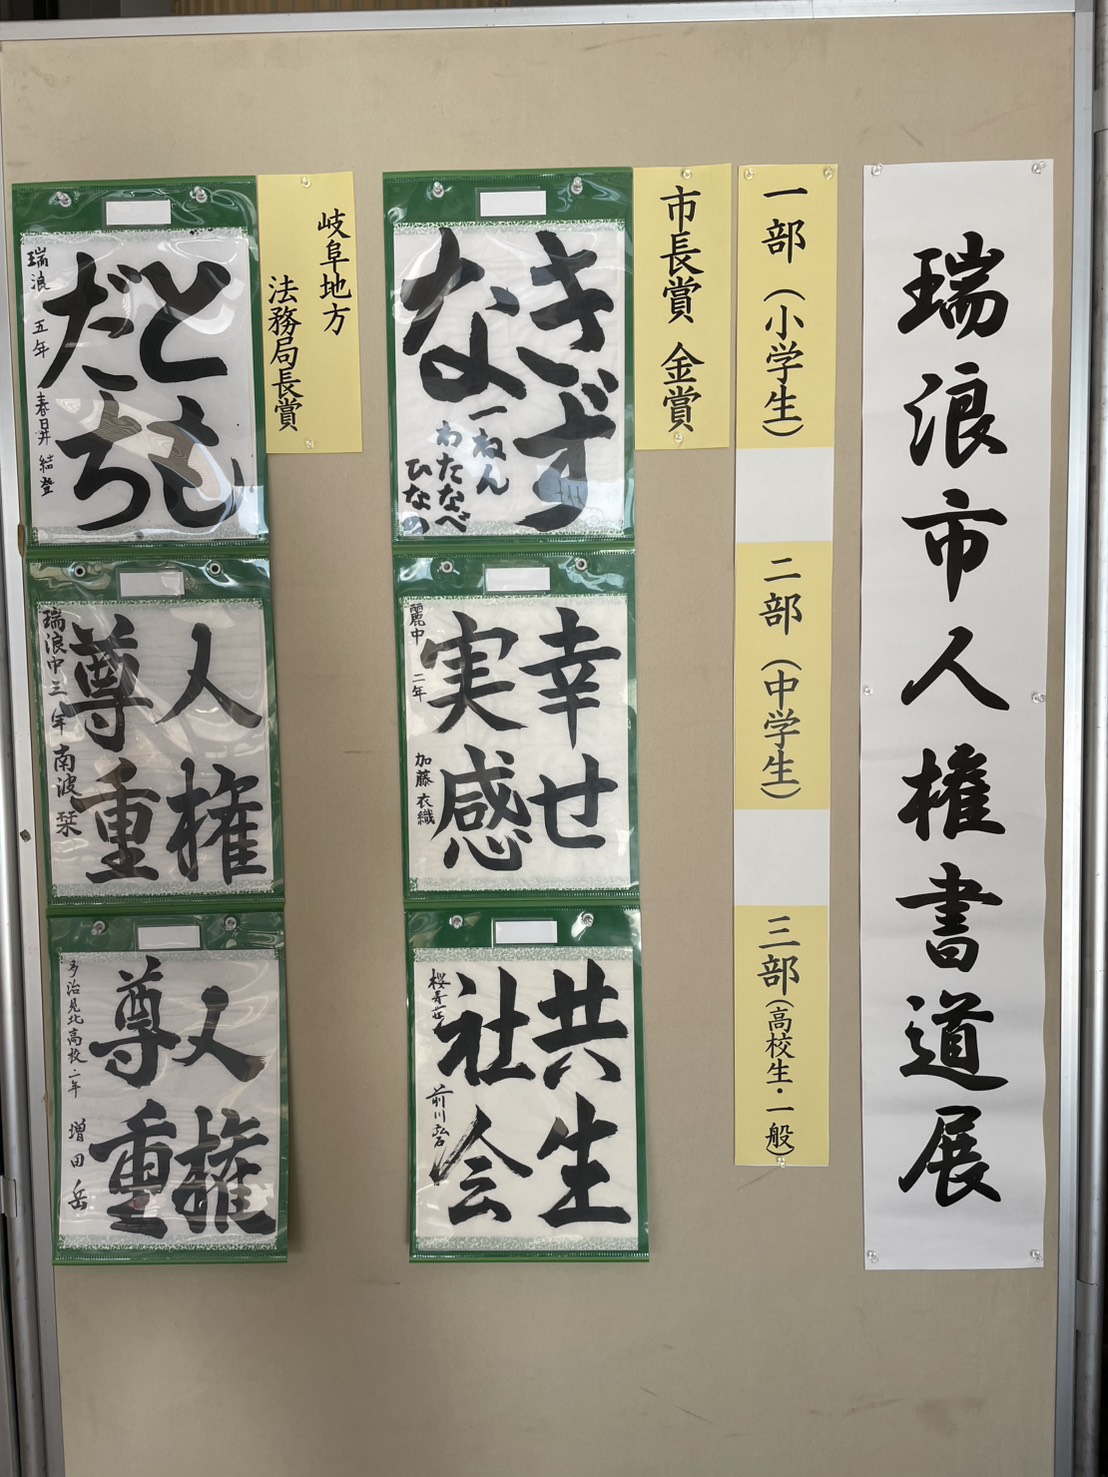 瑞浪市人権書道展
一部（小学生）
二部（中学生）
三部（高校生・一般）
市長賞 金賞
きず
な
一ねん
わたなべ
ひなの
幸せ
実感
麗中 二年 加藤衣織
共生
社会
前川
岐阜地方
法務局長賞
とも
だち
瑞浪 五年 春昇 結登
人権
尊重
瑞浪中三年 南波栞
人権
尊重
多治見北高校二年 増田岳